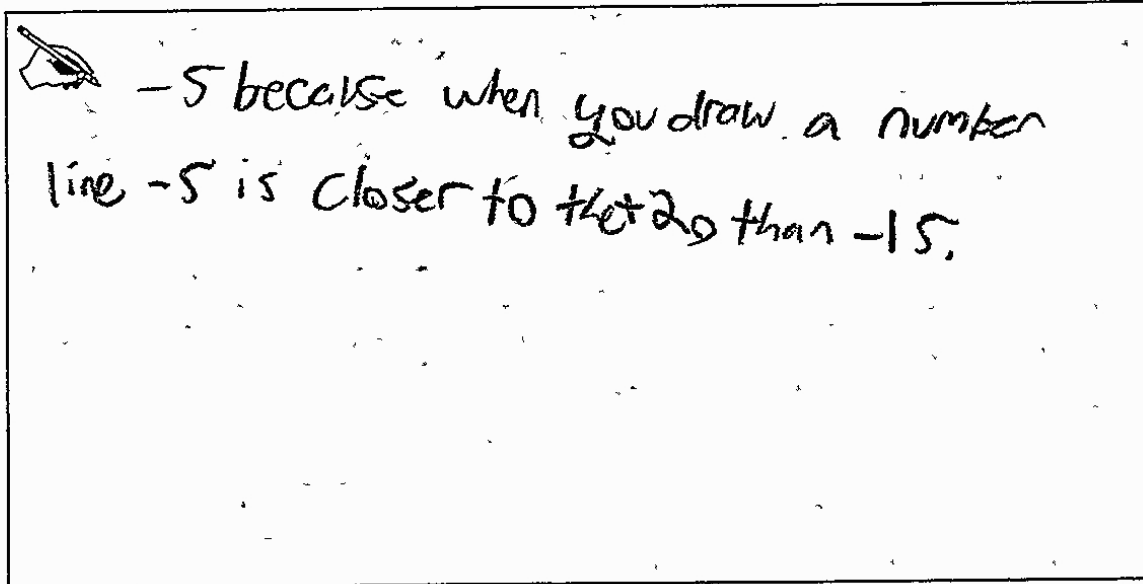 -5 because when you draw a number
line -5 is closer to the +20 than -15.